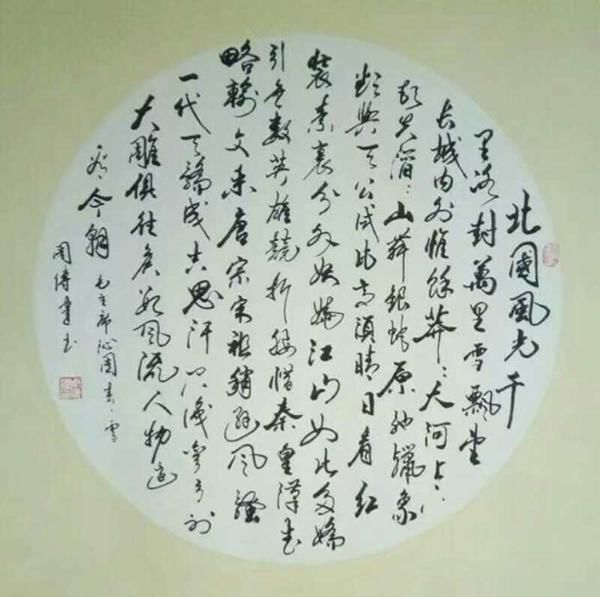 北國風光千
里冰封萬里雪飄望
長城内外惟餘莽:大河上下
頓失滔:山舞銀蛇原馳蠟象
欲與天公試比高須晴日看紅
裝素裹分外妖嬈江山如此多嬌
引無數英雄競折腰惜秦皇漢武
略輸文采唐宗宋祖稍遜風騷
一代天驕成吉思汗只識彎弓射
大雕俱往矣數風流人物還
看今朝
毛主席沁園春·雪
周傳书